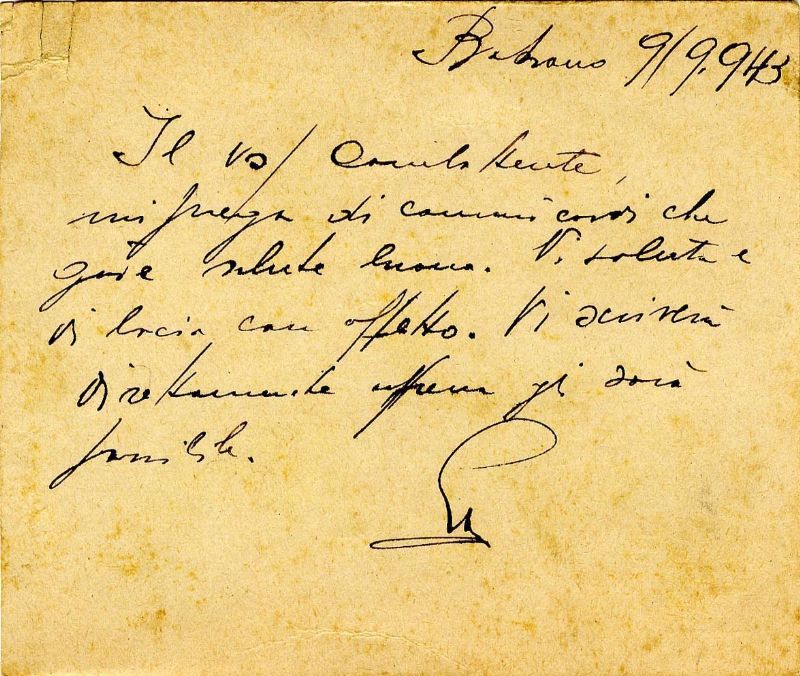 9/9.943
Il vs/ Combattente,
mi prega di comunicarvi che
gode salute buona. Vi saluta e
Vi bacia con affetto. Vi scriverà
direttamente appena gli sarà
possibile.